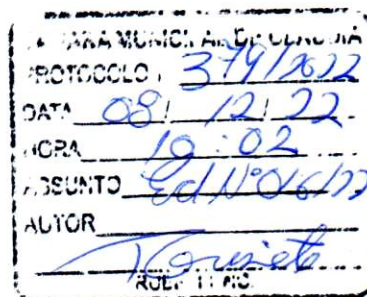 CÂMARA MUNICIPAL DE CLAUDIA
PROTOCOLO: 379/2022
DATA 08/12/22
HORA 10:02
ASSUNTO Ed Nº 016/22
AUTOR